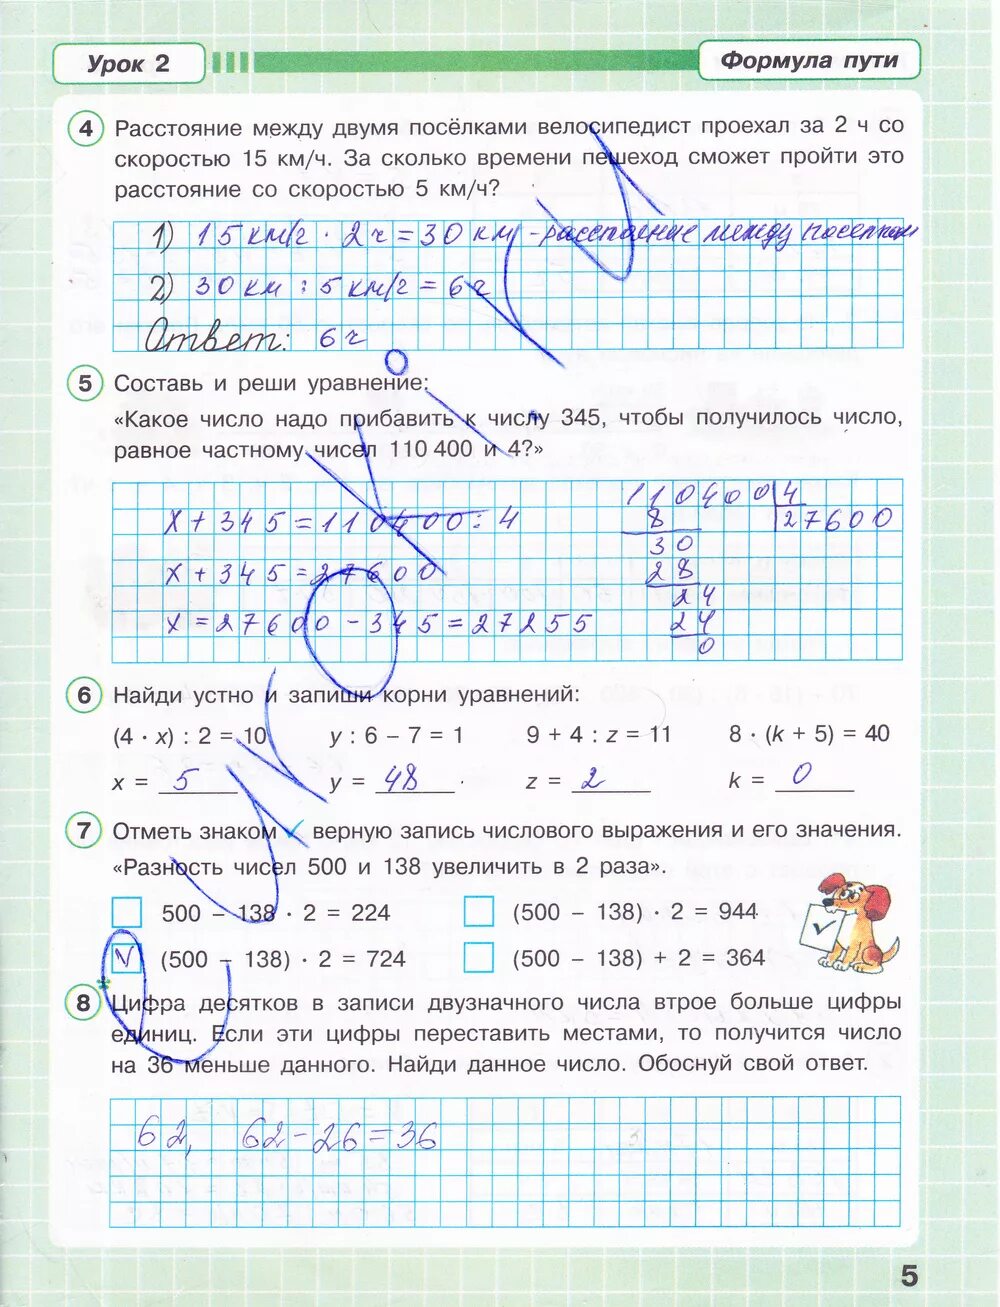 Урок 2
Формула пути
4 Расстояние между двумя посёлками велосипедист проехал за 2 ч со
скоростью 15 км/ч. За сколько времени пешеход сможет пройти это
расстояние со скоростью 5 км/ч?
1) 15 км/ч · 2 ч = 30 км - расстояние между
2) 30 км : 5 км/ч = 6 ч
Ответ: 6 ч
5 Составь и реши уравнение:
«Какое число надо прибавить к числу 345, чтобы получилось число,
равное частному чисел 110 400 и 4?»
x + 345 = 110400 : 4
x + 345 = 27600
x = 27600 - 345 = 27255
110400 4
8 27600
30
28
24
24
0
6 Найди устно и запиши корни уравнений:
(4 · x) : 2 = 10 y : 6 – 7 = 1 9 + 4 : z = 11 8 · (k + 5) = 40
x = 5 y = 48 z = 2 k = 0
7 Отметь знаком ✓ верную запись числового выражения и его значения.
«Разность чисел 500 и 138 увеличить в 2 раза».
500 – 138 · 2 = 224 (500 – 138) · 2 = 944
V (500 – 138) · 2 = 724 (500 – 138) + 2 = 364
8 Цифра десятков в записи двузначного числа втрое больше цифры
единиц. Если эти цифры переставить местами, то получится число
на 36 меньше данного. Найди данное число. Обоснуй свой ответ.
62, 62 - 26 = 36
5